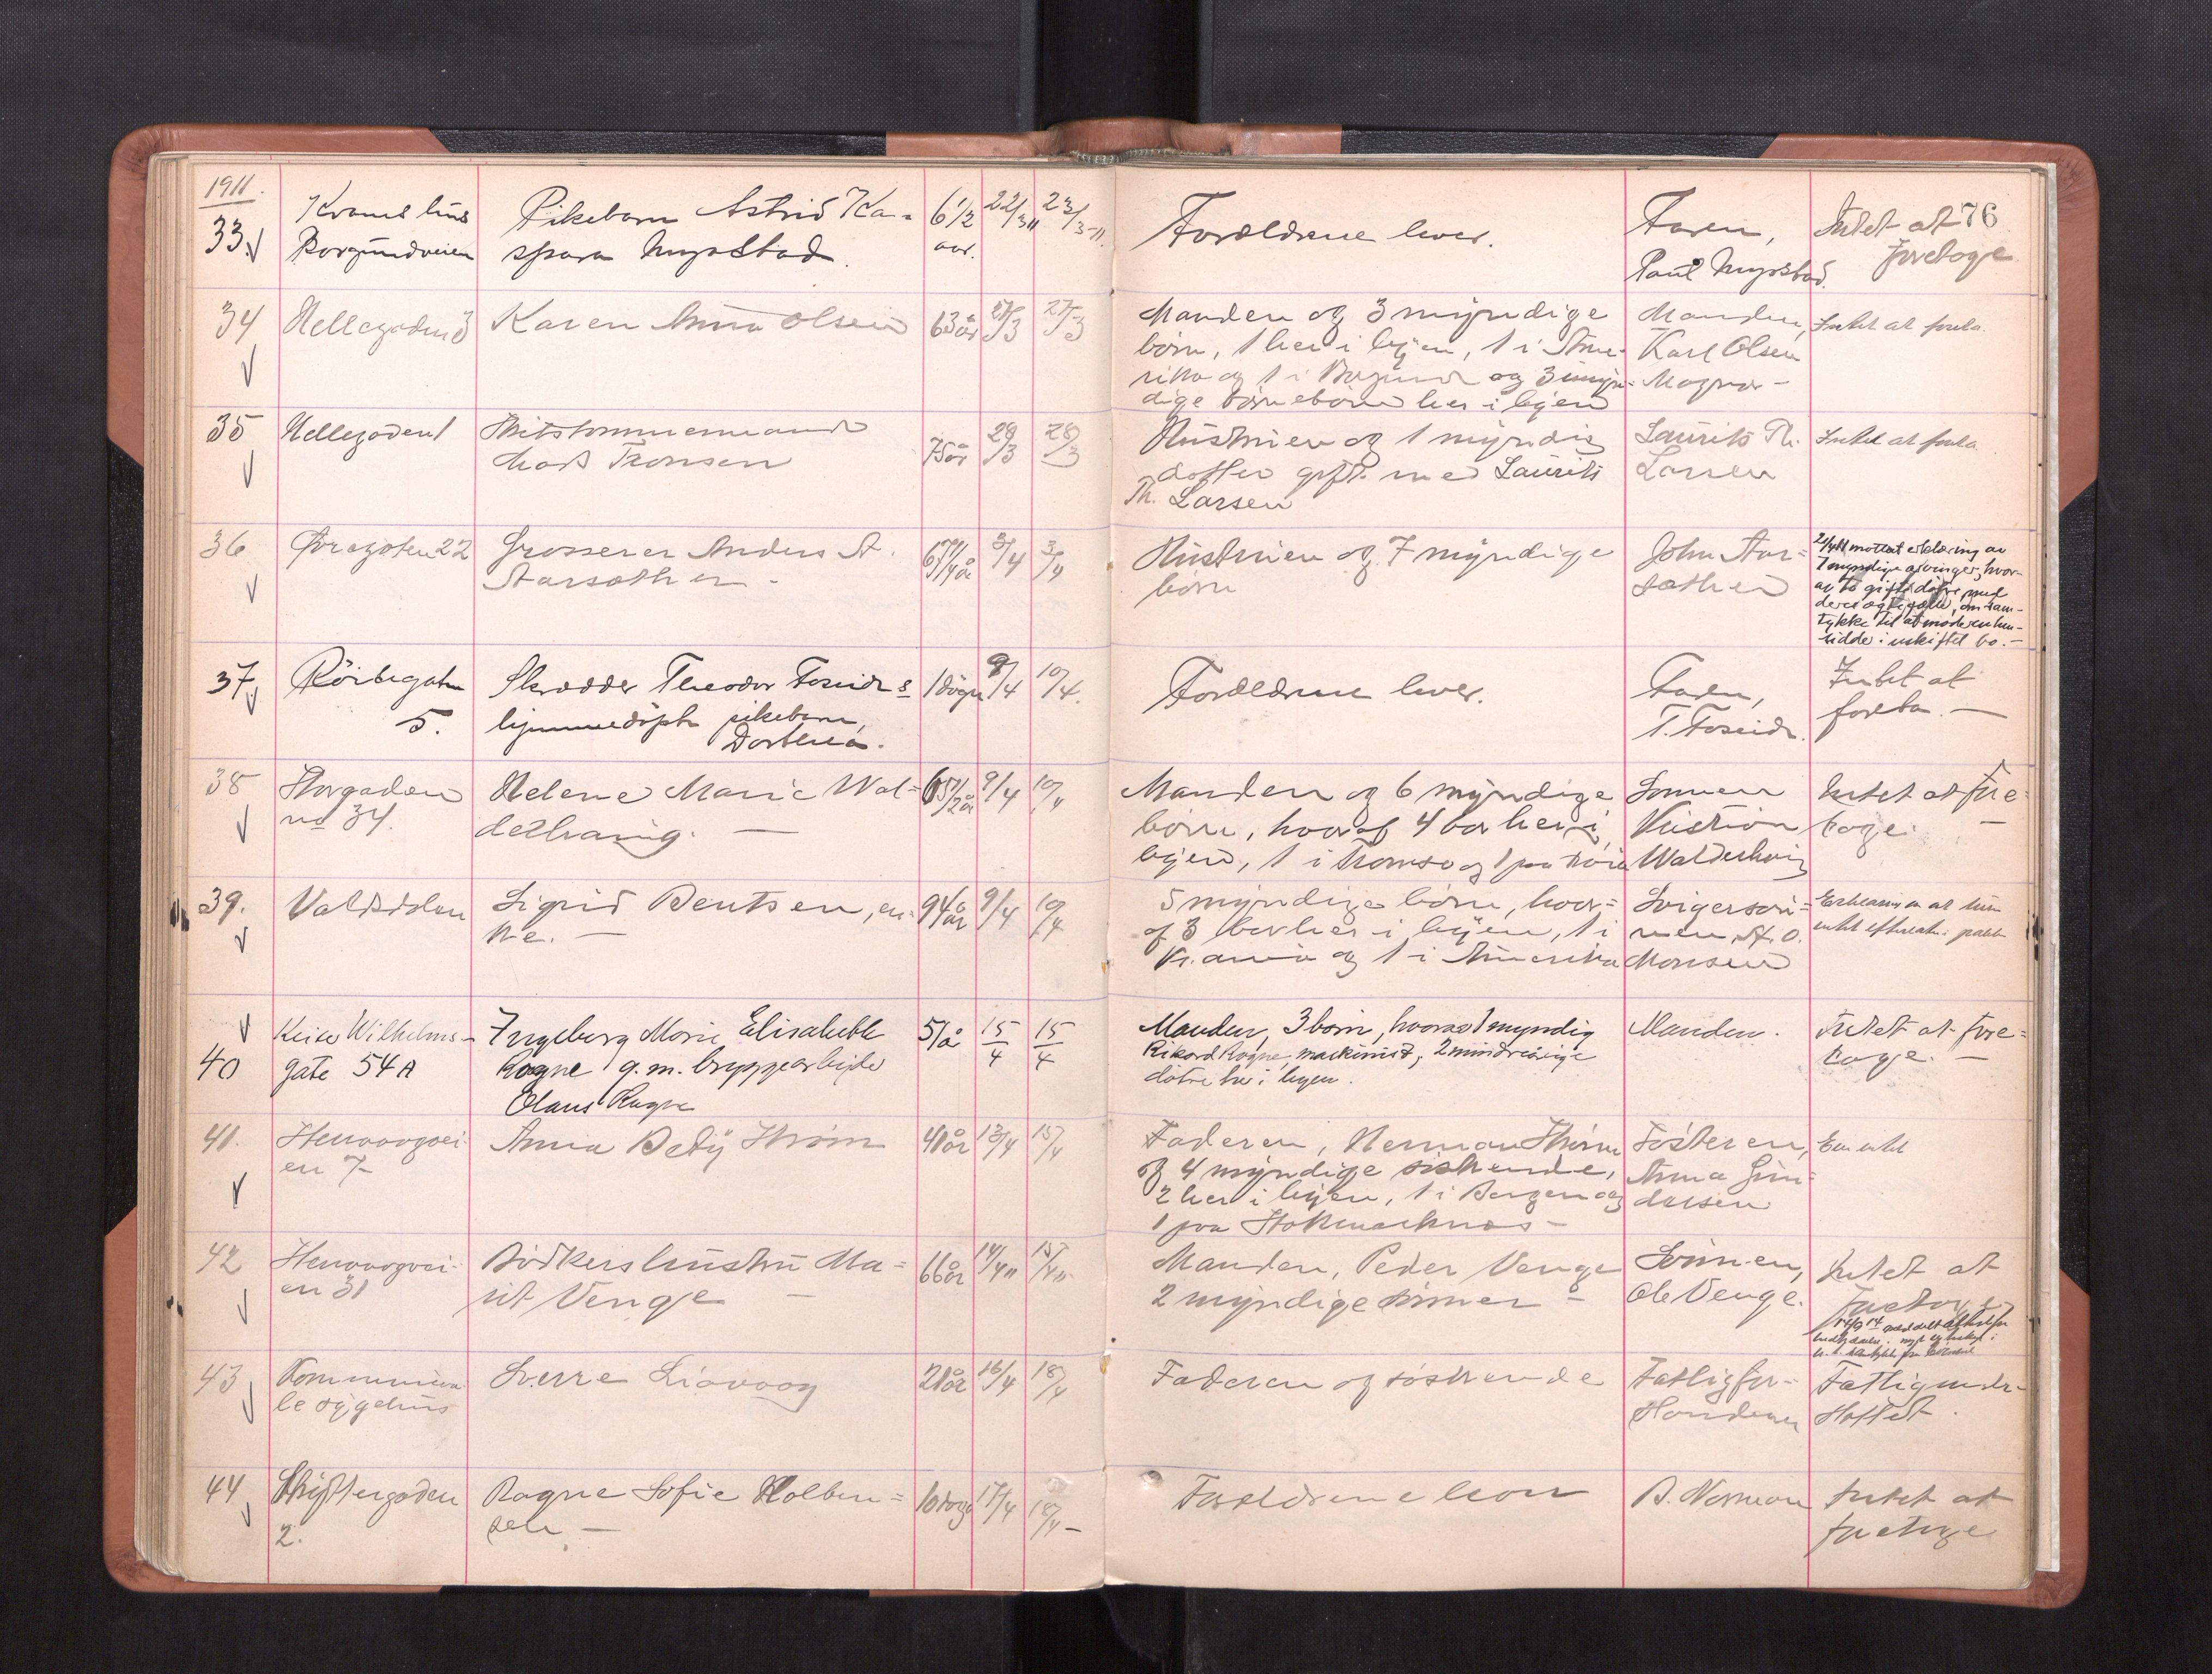 1911.
33.
Borgundveien
Pikebarn Astrid Ka=
spara Myrstad.
6 1/2
aar.
22/3 11
23/3-11.
Forældrene lever.
Faren,
Paul Myrstad.
Intet at
foretage
76
34
Hellegaden 3
Karen Anna Olsen
63 år
27/3
Manden og 3 myndige
børn, 1 her i byen, 1 i Ame=
rika og 1 i Borgund og 3 umyn=
dige børnebørn her i byen
Manden,
Karl Olsen
Intet at foreta.
35
Hellegaden 1
Mads Tronsen
75 år
28/3
Hustruen og 1 myndig
datter gift med Laurits
Th. Larsen
Laurits Th.
Larsen
Intet at foreta
36
Øvregaten 22
Grosserer Anders A.
Aarsæther -
3/4
3/4
Hustruen og 7 myndige
børn
John Aar=
sæther
mottat erklæring av
7 myndige arvinger, hvor-
av to gifte døtre med
deres ægtefæller, om sam-
tykke til at moderen hen-
sidder i uskiftet bo. -
37.
5.
Skrædder Theodor Foseids
hjemmedøpte pikebarn,
Dorthea.
1 døgn
9/4
10/4.
Forældrene lever.
Faren,
T. Foseid.
Intet at
foreta. -
38
Storgaden
no 34.
Helene Marie Wal=
derhaug. -
9/4
10/4
Manden og 6 myndige
børn, hvoraf 4 bor her i
byen, 1 i Tromsø og 1 på
Sønnen
Kristian
Walderhaug
Intet at fore=
tage. -
39.
Sigrid Bentsen, en=
ke. -
94 år
9/4
10/4
5 myndige børn, hvor=
af 3 bor her i byen, 1 i
Kr.ania og 1 i Amerika
Svigersøn=
nen, A. O.
Monsen
40
Keiser Wilhelms-
gate 54 A
Ingeborg Marie Elisabeth
Rogne g.m. bryggearbeider
Olaus Rogne
51 år
15/4
15/4
Manden, 3 børn, hvorav 1 myndig
Rikard Rogne, maskinist, 2 mindreårige
døtre her i byen.
Manden.
Intet at fore=
tage. -
41.
Anna Betzy Strøm
41 år
13/4
15/4
Faderen, Herman Strøm
og 4 myndige søskende,
2 her i byen, 1 i Bergen og
1 paa Stokmarknes -
Søsteren,
Anna Gun=
dersen
Eier intet
42
Bødkers hustru Ma=
rit Venge -
66 år
14/4 11
15/4 11
Manden, Peder Venge
2 myndige sønner -
Sønnen,
Ole Venge.
Intet at
foretage
43
Kommuna
le sygehus
Sverre Liavaag
21 år
16/4
18/4
Faderen og søskende
Fattigfor=
standeren
Fattigunder-
støttet.
44
Skippergaden
2.
Ragna Sofie Kolben=
10 dage
17/4
18/4 -
Forældrene lever
B. Norman
Intet at
foretage